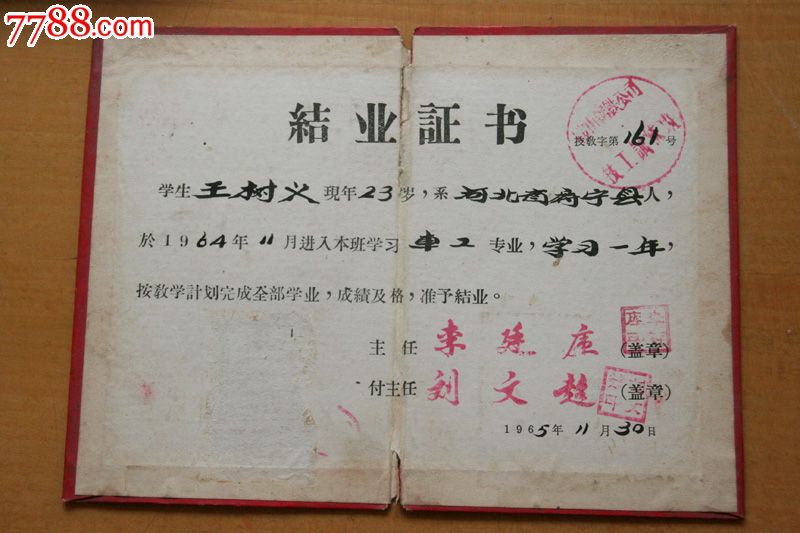 7788.com
中国收藏热线
結业証书
技教字第161号
学生王树义現年23岁，系河北省府宁县人，
於1964年11月进入本班学习車工专业，学习一年，
按教学計划完成全部学业，成績及格，准予結业。
主任 李廷 （盖章）
付主任 刘文超 （盖章）
1965年11月30日